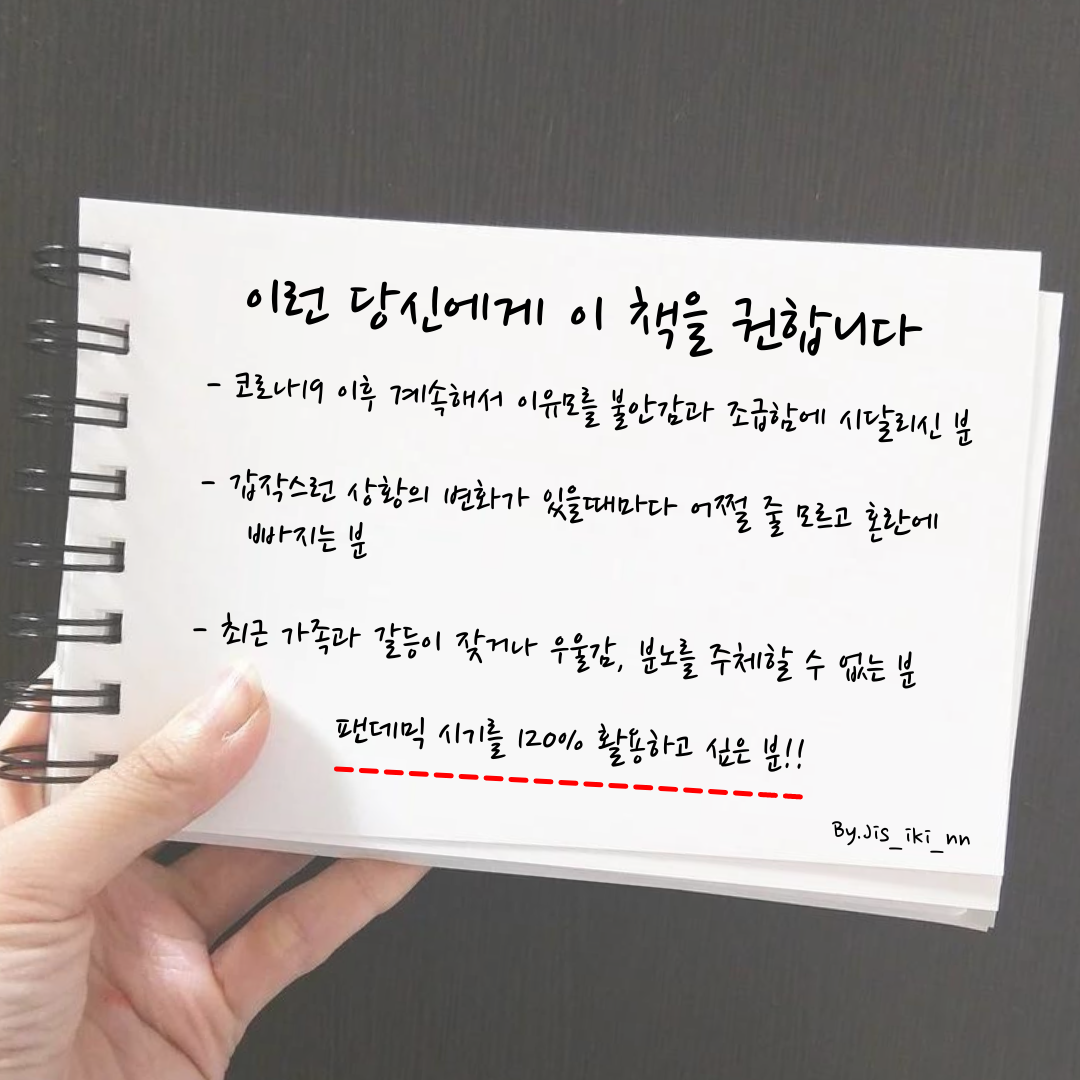 이런 당신에게 이 책을 권합니다
- 코로나19 이후 계속해서 이유모를 불안감과 조급함에 시달리신 분
- 갑작스런 상황의 변화가 있을때마다 어쩔 줄 모르고 혼란에
빠지는 분
- 최근 가족과 갈등이 잦거나 우울감, 분노를 주체할 수 없는 분
팬데믹 시기를 120% 활용하고 싶은 분!!
By.Jis_iki_nn